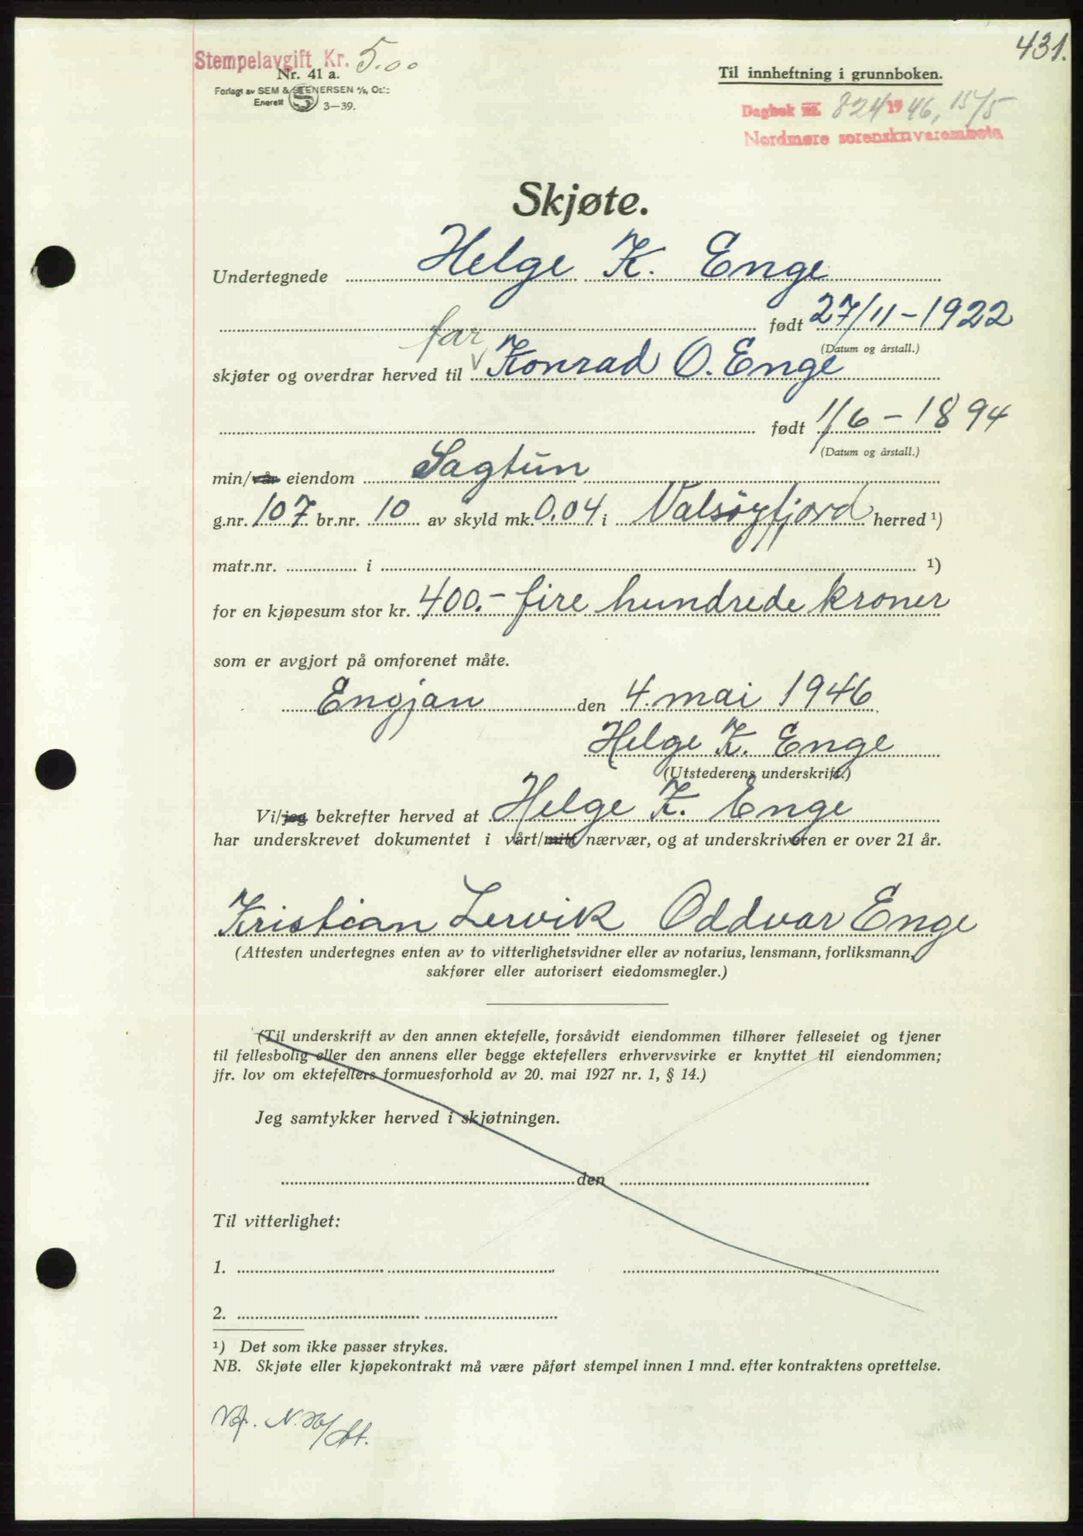 431.
Stempelavgift Kr. 5.00
Nr. 41 a.
Forlagt av SEM & STENERSEN A/S, Oslo
Enerett S 3—39.
Til innheftning i grunnboken.
Dagbok nr. 824 1946, 15/5
Nordmøre sorenskriverembete
Skjøte.
Undertegnede Helge K. Enge
født 27/11-1922
(Datum og årstall.)
far
skjøter og overdrar herved til V Konrad O. Enge
født 1/6-1894
(Datum og årstall.)
min/vår eiendom Sagtun
g.nr. 107 br.nr. 10 av skyld mk. 0.04 i Valsøyfjord herred ¹)
matr.nr. i ¹)
for en kjøpesum stor kr. 400.- fire hundrede kroner
som er avgjort på omforenet måte.
Engjan den 4. mai 1946
Helge K. Enge
(Utstederens underskrift.)
Vi/jeg bekrefter herved at Helge K. Enge
har underskrevet dokumentet i vårt/mitt nærvær, og at underskriveren er over 21 år.
Kristian Lervik Oddvar Enge
(Attesten undertegnes enten av to vitterlighetsvidner eller av notarius, lensmann, forliksmann,
sakfører eller autorisert eiedomsmegler.)
(Til underskrift av den annen ektefelle, forsåvidt eiendommen tilhører felleseiet og tjener
til fellesbolig eller den annens eller begge ektefellers erhvervsvirke er knyttet til eiendommen;
jfr. lov om ektefellers formuesforhold av 20. mai 1927 nr. 1, § 14.)
Jeg samtykker herved i skjøtningen.
den
Til vitterlighet:
1.
2.
¹) Det som ikke passer strykes.
NB. Skjøte eller kjøpekontrakt må være påført stempel innen 1 mnd. efter kontraktens oprettelse.